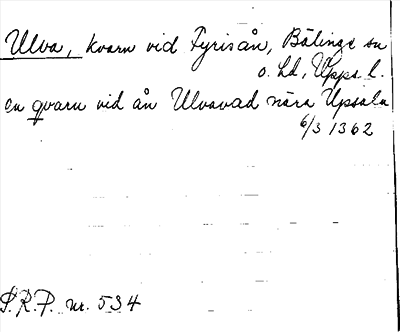 Ulva, kvarn vid Fyrisån, Bälinge sn
o. hd, Upps. l.
en qvarn vid ån Ulvavad nära Upsala
6/3 1362
S.R.P. nr. 534